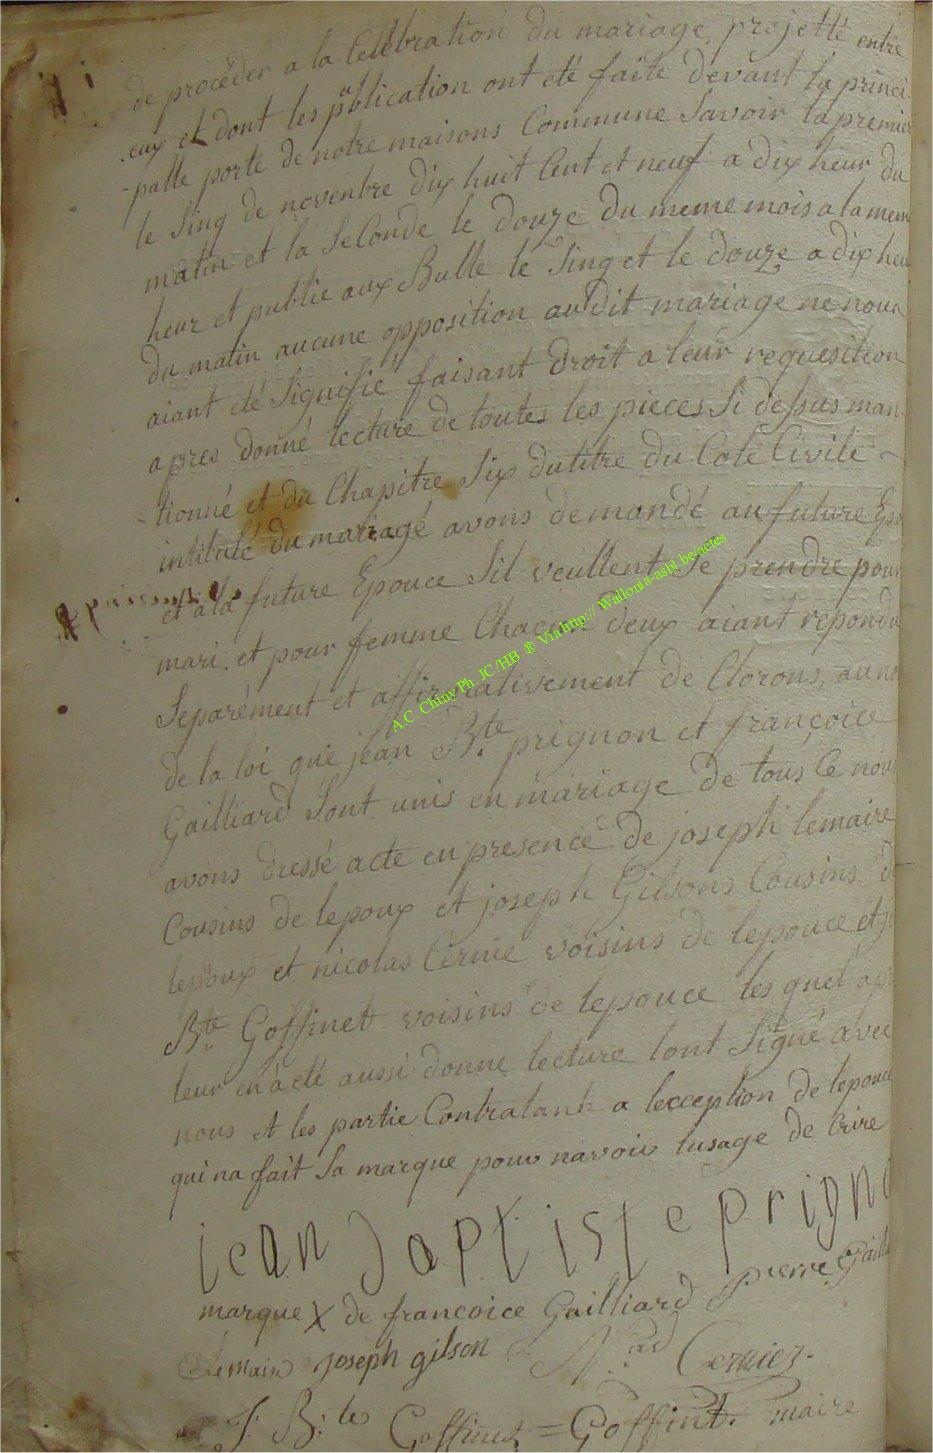 de procéder a la Celebration du mariage projetté entre
eux et dont les publication ont eté faite devant la princi-
-palle porte de notre maisons Commune Savoir la premier
le Sinq de novenbre dix huit Cent et neuf a dix heur du
matin et la Seconde le douze du meme mois a la mem
heur et publie aux Bulle le Sinq et le douze a dix heu
du matin aucune opposition audit mariage ne nous
aiant eté Signifié faisant droit a leur requesition
apres donné lecture de toutes les pieces Si dessus man
-tionné et du Chapitre Six dutitre du Code Civile -
intitulé du mariagé avons demandé au future Epou
et a la future Epouce Sil veullent Se prendre pour
mari et pour femme Chacun deux aiant repondu
Separément et affirmativement de Clarons, au no
de la loi que jean Bte prignon et françoice
Gailliard Sont unis en mariage de tous Ce nous
avons dressé acte en presence de joseph lemaire
Cousins de lepoux et joseph Gilsons Cousins d
lepoux et nicolas Cernie voisins de lepouce et
Bte Goffinet voisins de lepouce les quel apr
leur en à eté aussi donne lecture lont Signé avec
nous et les partie Contratant a lexception de lepouce
qui na fait Sa marque pour navoir lusage de Crire
jean Japtiste prigno
marque X de francoice Gailliard Pierre Gailli
Lemaire joseph gilson N. Cerniez.
J: B: te Goffinet = Goffint. maire
A.C. Chiny Ph JC/HB ® Via http://Wallonia-asbl.be/actes